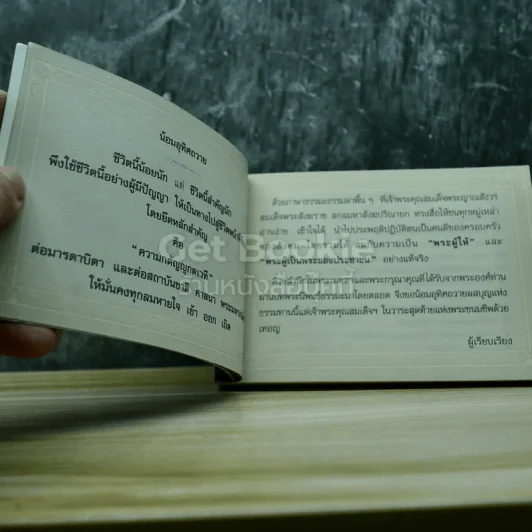 น้อมอุทิศถวาย
ชีวิตนี้น้อยนัก แต่ ชีวิตนี้สำคัญนัก
พึงใช้ชีวิตนี้อย่างผู้มีปัญญา ให้เป็นทางไปสู่ชีวิตหน้า
โดยยึดหลักสำคัญ
คือ
"ความกตัญญูกตเวที"
ต่อมารดาบิดา และต่อสถาบันชาติ ศาสนา
ให้มั่นคงทุกลมหายใจ เข้า ออก เถิด
ด้วยภาษาธรรมะธรรมดาพื้น ๆ ที่เจ้าพระคุณสมเด็จพระญาณสังวร
สมเด็จพระสังฆราช สกลมหาสังฆปริณายก ทรงสื่อให้ชนทุกหมู่เหล่า
อ่านง่าย เข้าใจได้ นำไปประพฤติปฏิบัติตนเป็นคนดีของครอบครัว
โดยรวมได้ สมกับความเป็น "พระผู้ให้" และ
"พระผู้เป็นพระของประชาชน" อย่างแท้จริง
และพระกรุณาคุณที่ได้รับจากพระองค์ท่าน
มาโดยตลอด จึงขอน้อมอุทิศถวายผลบุญแห่ง
ธรรมทานนี้แด่เจ้าพระคุณสมเด็จฯ ในวาระสุดท้ายแห่งพระชนม์ชีพด้วย
เทอญ
ผู้เรียบเรียง
Get Books
ร้านหนังสือมือหนึ่ง